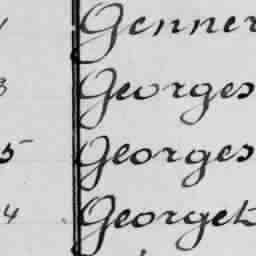 Genner
3 Georges
5 Georges
4 Georget